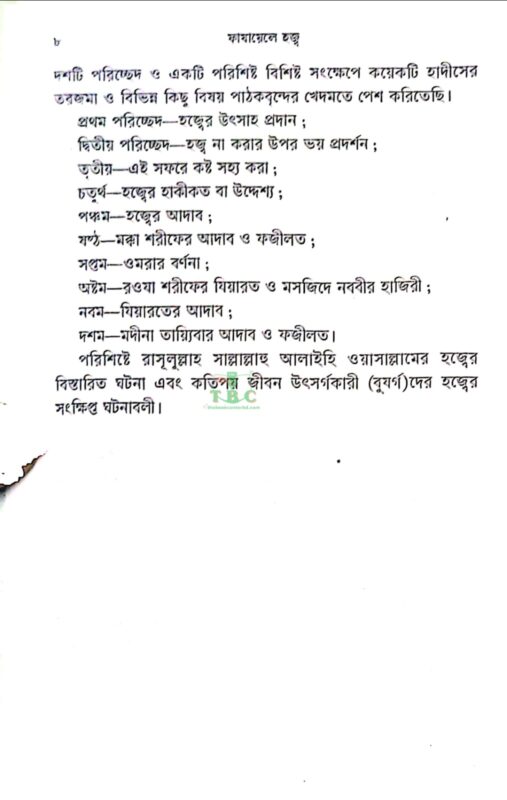 ৮ ফাযায়েলে হজ্ব
দশটি পরিচ্ছেদ ও একটি পরিশিষ্ট বিশিষ্ট সংক্ষেপে কয়েকটি হাদীসের
তরজমা ও বিভিন্ন কিছু বিষয় পাঠকবৃন্দের খেদমতে পেশ করিতেছি।
প্রথম পরিচ্ছেদ—হজ্বের উৎসাহ প্রদান ;
দ্বিতীয় পরিচ্ছেদ—হজ্ব না করার উপর ভয় প্রদর্শন ;
তৃতীয়—এই সফরে কষ্ট সহ্য করা ;
চতুর্থ—হজ্বের হাকীকত বা উদ্দেশ্য ;
পঞ্চম—হজ্বের আদাব ;
ষষ্ঠ—মক্কা শরীফের আদাব ও ফজীলত ;
সপ্তম—ওমরার বর্ণনা ;
অষ্টম—রওযা শরীফের যিয়ারত ও মসজিদে নববীর হাজিরী ;
নবম—যিয়ারতের আদাব ;
দশম—মদীনা তায়্যিবার আদাব ও ফজীলত।
পরিশিষ্টে রাসূলুল্লাহ সাল্লাল্লাহু আলাইহি ওয়াসাল্লামের হজ্বের
বিস্তারিত ঘটনা এবং কতিপয় জীবন উৎসর্গকারী (বুযর্গ)দের হজ্বের
সংক্ষিপ্ত ঘটনাবলী।
TBC